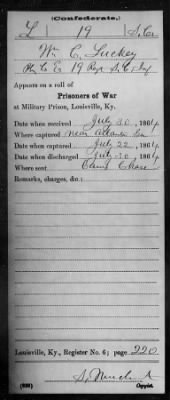 (Confederate.)
L 19 S. Ca
Wm C. Luckey
Co E 19 Regt S. C. Inf
Appears on a roll of
Prisoners of War
at Military Prison, Louisville, Ky.
Date when received July 30, 1864
Where captured near Atlanta Ga
Date when captured July 22, 1864
Date when discharged July 30, 1864
Where sent Camp Chase
Remarks, charges, &c.:
Louisville, Ky., Register No. 6; page 220
Copyist.